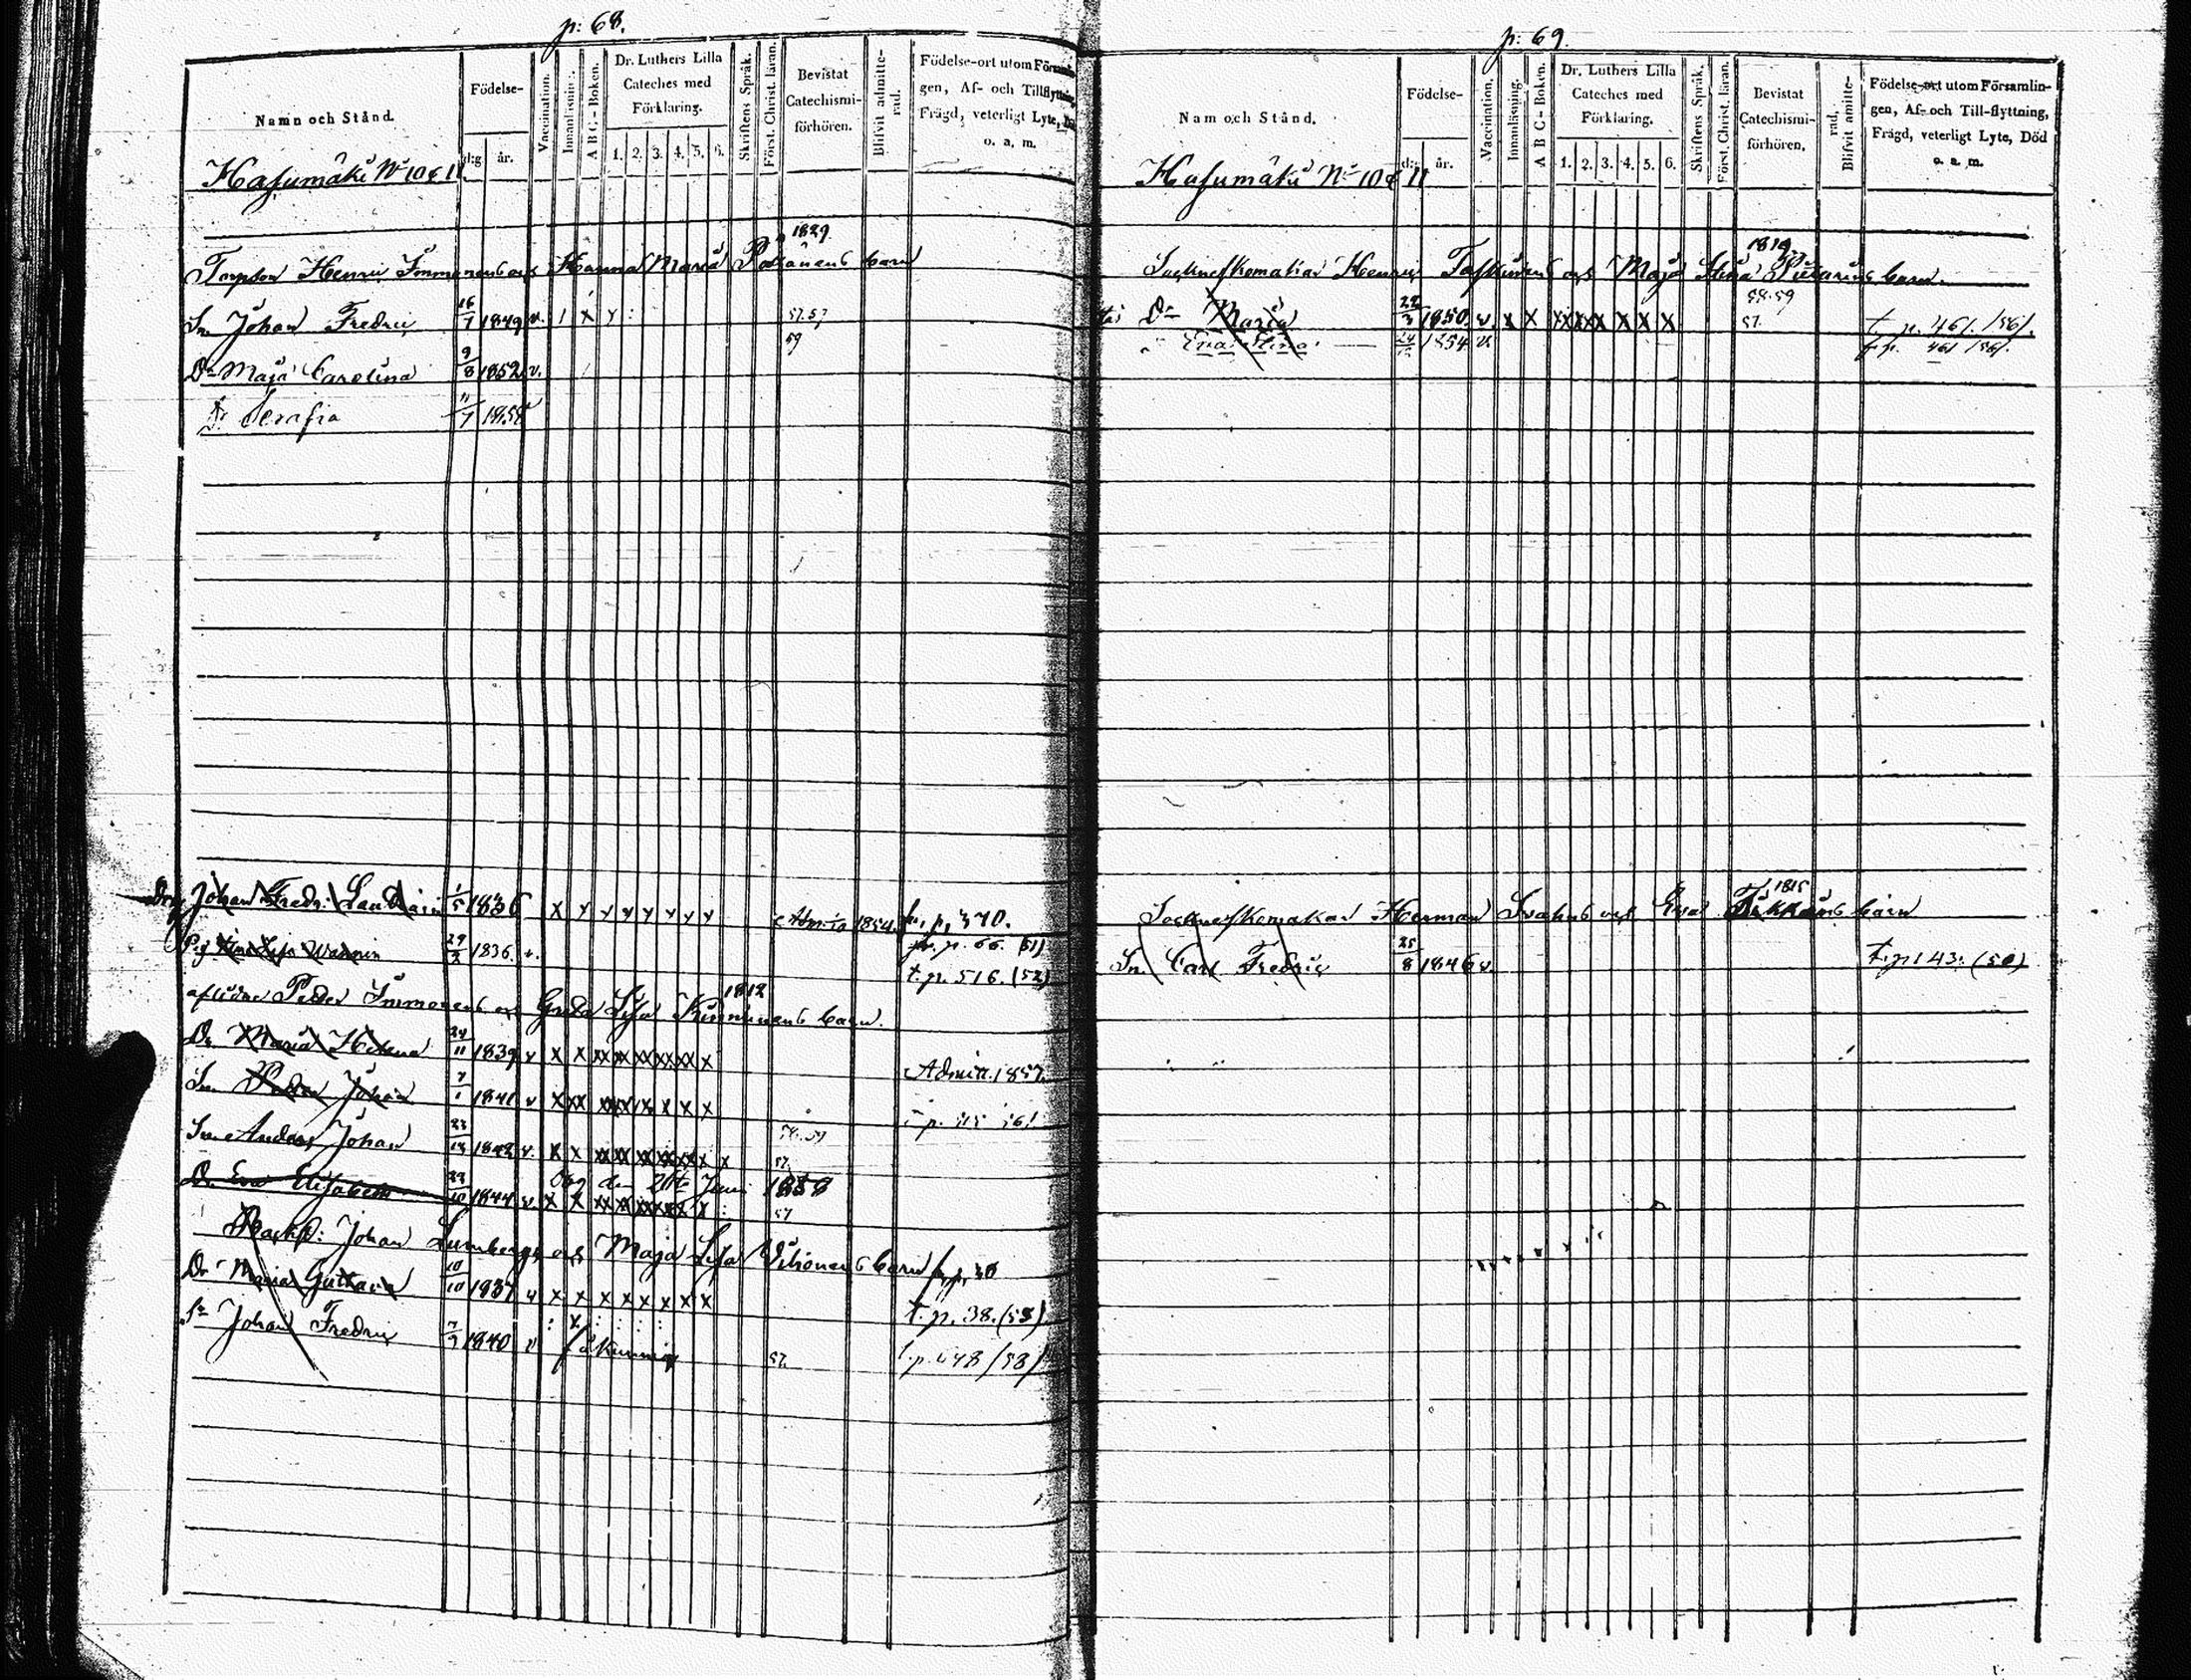 p: 68.
Namn och Stånd.
Födelse-
dag
år.
Vaccination.
Innanläsning.
A B C - Boken.
Dr. Luthers Lilla
Cateches med
Förklaring.
1. 2. 3. 4. 5. 6.
Skriftens Språk.
Först. Christ. läran.
Bevistat
Catechismi-
förhören.
Blifvit admitte-
rad.
Födelse-ort utom Församlin-
gen, Af- och Tillflyttning,
Frägd, veterligt Lyte,
o. a. m.
Hasumäki No 10 & 11
1829
Torpson Henric Immonens och Hanna Maria barn
Sn. Johan Fredric 16/7 1849 v. 1 x y : 57.57
59
Dr Maja Carolina 9/8 1852 v.
Dr. Serafia 11/7 1858 v
Johan Fredr: 1/5 1836 x y y y y y y y Adm:ta 1854. fr. p. 370.
Pig. Lisa 29/2 1836. v. fr. p. 66. (51)
t. p. 516. (52)
1812
aflidne Peder Immonens och Greta Lisa Kinnunens barn.
Dr. Maria Helena 24/11 1839 v x x xx xx xx xx xx x Admitt. 1857.
Sn. Peder Johan 7/1 1841 v x xx xx x x x x x
Sn. Anders Johan 23/12 1842 v. x x xx xx xx xx xx x x 57.
58.59
Dr. Eva Elisabeth 29/10 1844 v. x x xx xx xx xx x : 57
Död den 20de Juni 1858
Backst: Johan Lumbergs och Maja Lisa Vihonens barn fr. p. 30
Dr Maria Gustava 10/10 1837 v x x x x x x x x t. p. 38. (55)
Sn Johan Fredric 7/9 1840 v : x : : : : 57. t. p. 648 (58)
fåkunnig
p: 69.
Nam och Stånd.
Födelse-
d:
år.
Vaccination.
Innanläsning.
A B C - Boken.
Dr. Luthers Lilla
Cateches med
Förklaring.
1. 2. 3. 4. 5. 6.
Skriftens Språk.
Först. Christ. läran.
Bevistat
Catechismi-
förhören.
rad.
Blifvit amitte-
Födelse-ort utom Församlin-
gen, Af- och Till-flyttning,
Frägd, veterligt Lyte, Död
o. a. m.
Hasumäki No 10 & 11
1819
Sockneskomakar Henric Taskinens och Maja Stina barn.
58.59
Dr Maria 22/3 1850. v. x x xx xx x x x x 57. t. p. 461. /56/.
Eva Stina 1854 v. t. p. 461 /56/.
1815
Sockneskomakar Herman Svahns och Eva Tikkans barn
Sn. Carl Fredric 25/8 1846 v. t. p. 143. (50)